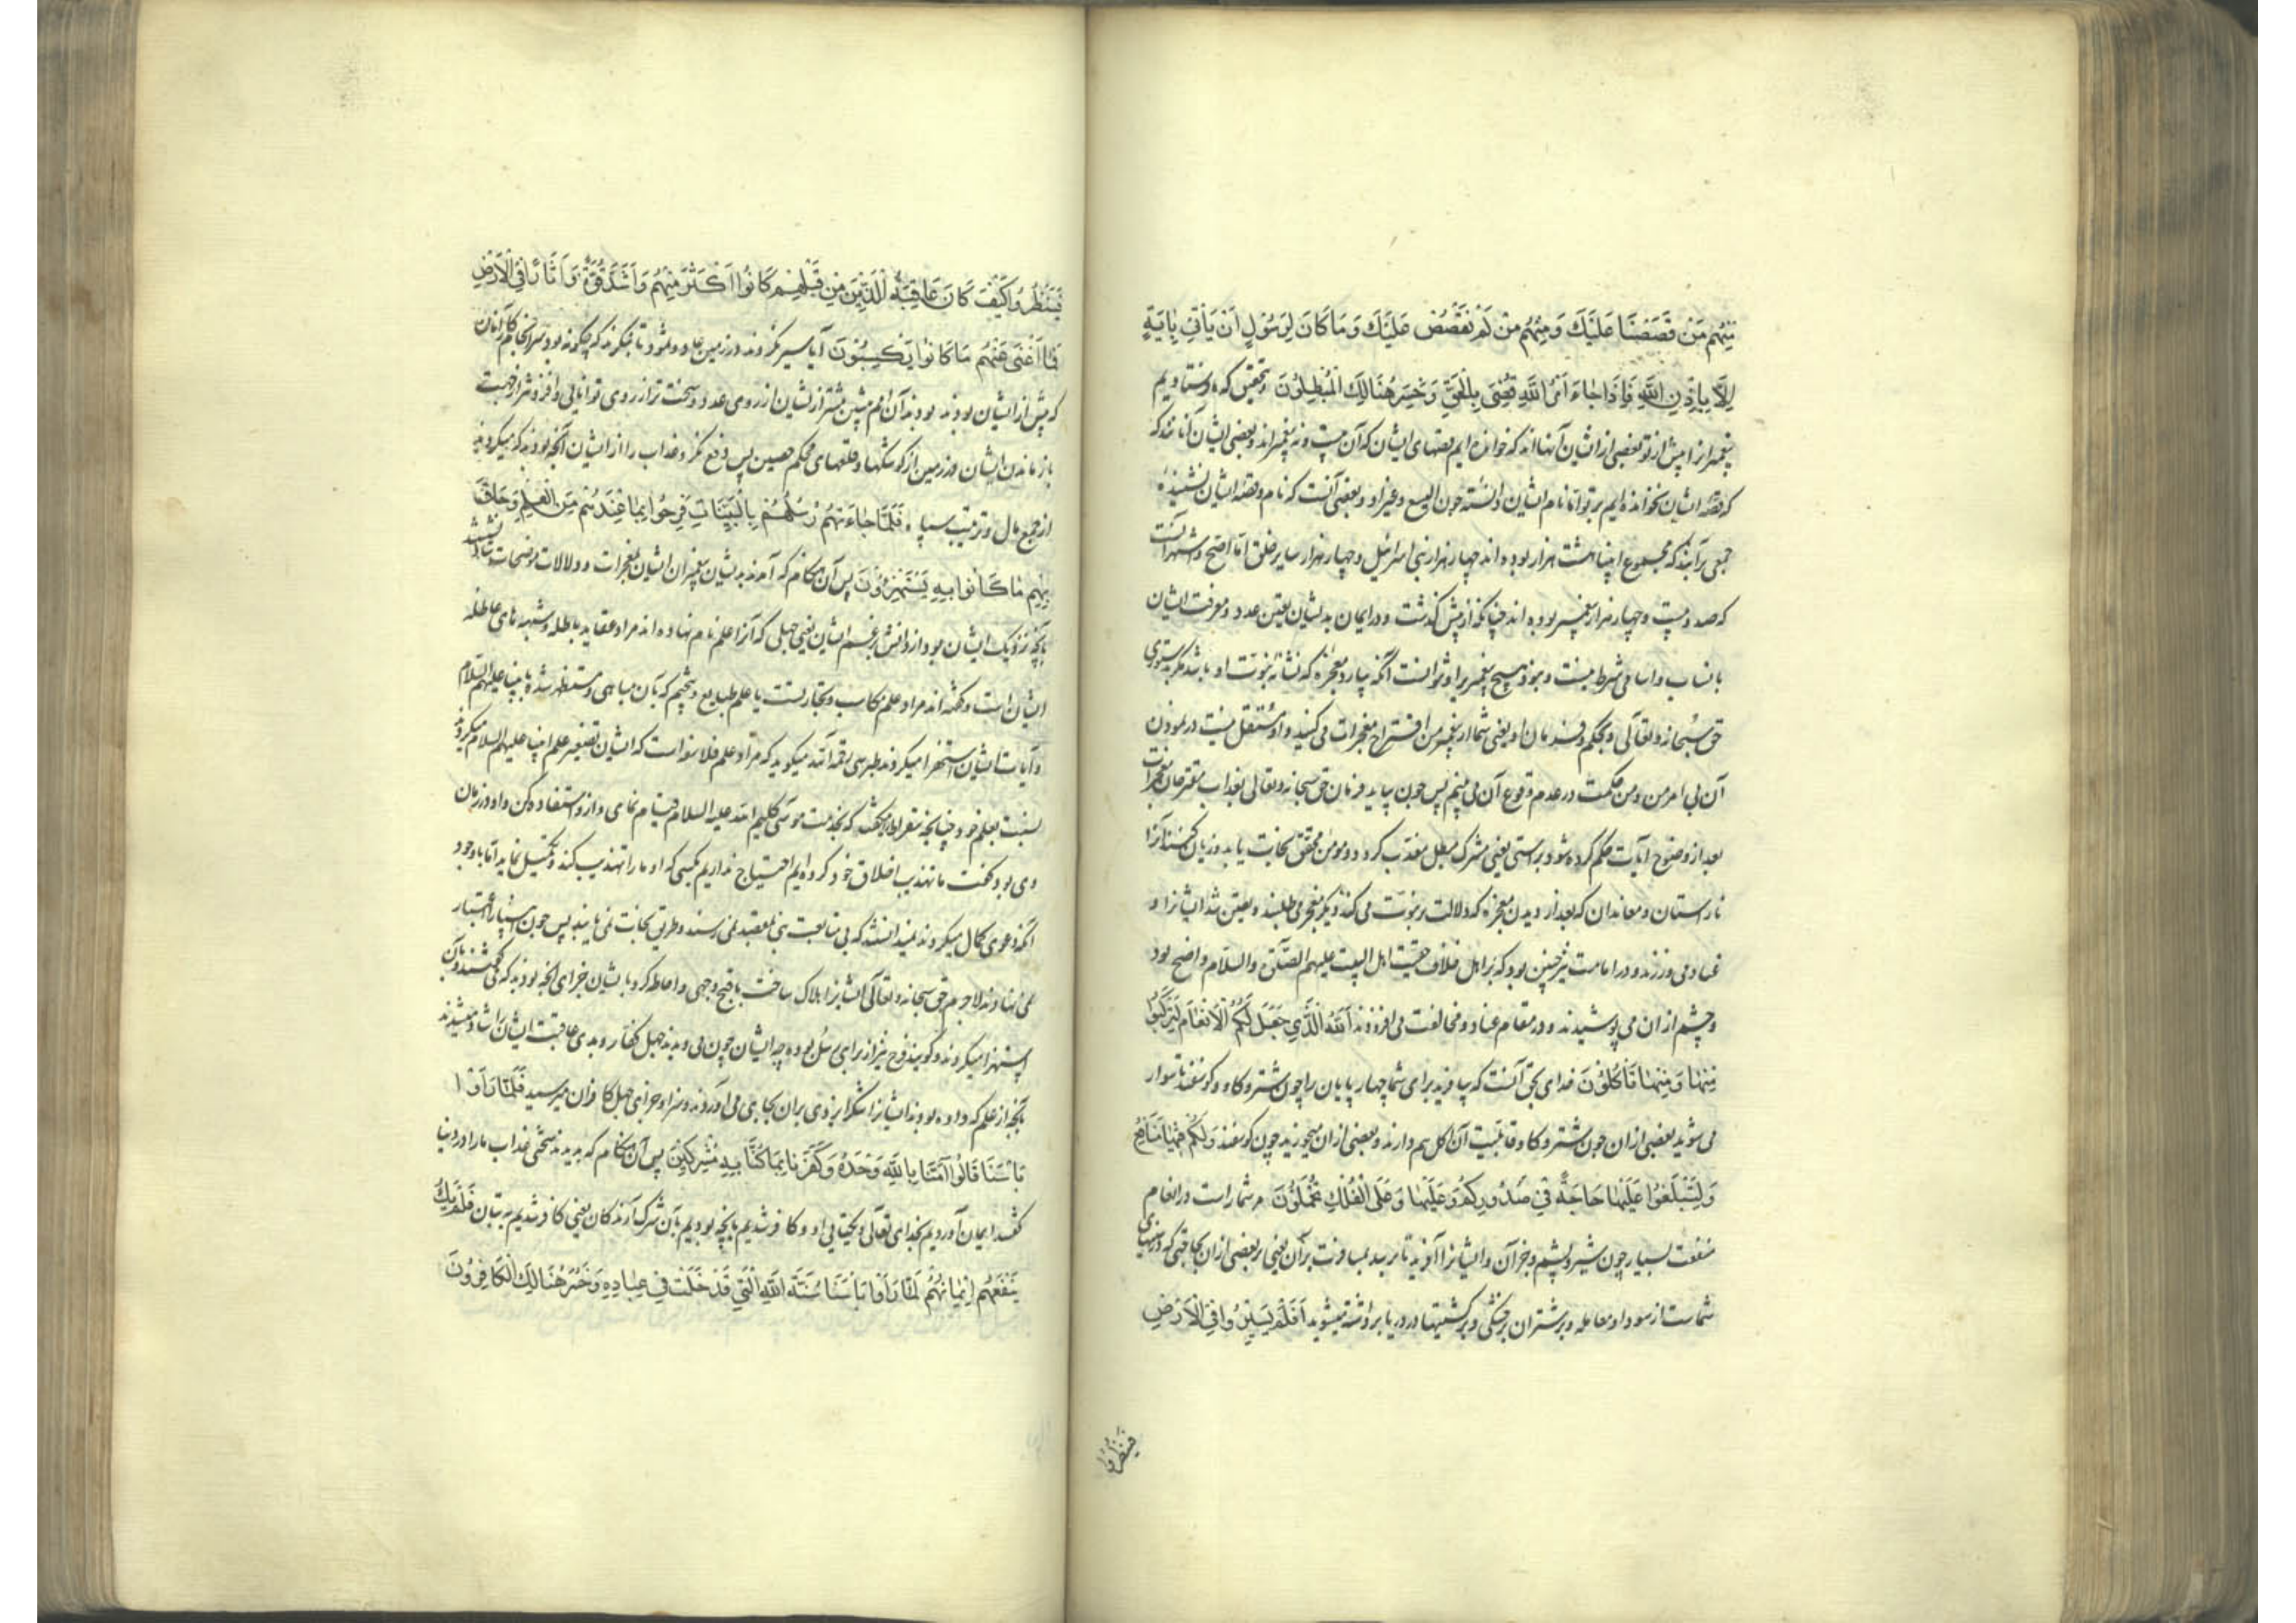 مِنْهُمْ مَنْ قَصَصْنَا عَلَيْكَ وَمِنْهُمْ مَنْ لَمْ نَقْصُصْ عَلَيْكَ وَمَا كَانَ لِرَسُولٍ أَنْ يَأْتِيَ بِآيَةٍ
إِلَّا بِإِذْنِ اللَّهِ فَإِذَا جَاءَ أَمْرُ اللَّهِ قُضِيَ بِالْحَقِّ وَخَسِرَ هُنَالِكَ الْمُبْطِلُونَ و بتحقیق که ما فرستادیم
پیغمبرانرا پیش از تو بعضی از ایشان آنها اند که خوانده ایم قصهای ایشان که آن بیست و نه پیغمبراند و بعضی ایشان آنانند که
که قصه ایشان نخوانده ایم بر تو اما نام ایشان دانسته چون الیسع و غیر او و بعضی آنست که نام و قصه ایشان نشنیده
جمعی برآنند که مجموع انبیا هشت هزار بوده اند چهار هزار از بنی اسرائیل و چهار هزار از سایر خلق اما اصح و اشهر آنست
که صد و بیست و چهار هزار پیغمبر بوده اند چنانکه از پیش گذشت و در ایمان بدیشان تعین عدد و معرفت ایشان
بانساب و اسامی شرط نیست و نبود هیچ پیغمبر را و نتوانست آنکه بیارد معجزه که نشانه نبوت او باشد مگر بدستوری
حق سبحانه و تعالی و بحکم و فرمان او یعنی شما از پیغمبر من اقتراح معجزات می کنید و او مستقل نیست در نمودن
آن بی امر من و من حکمت در عدم وقوع آن می بینم پس چون بیاید فرمان حق سبحانه و تعالی بعذاب مقترحان معجزات
بعد از وضوح آیات حکم کرده شود براستی یعنی مشرک مبطل معذب گردد و مومن محقق نجات یابد و زیان کنند آنزا
ناراستان و معاندان که بعد از دیدن معجزه که دلالت بر نبوت می کند دیگر معجز می طلبند و یقین شد ایشانرا و
عناد می ورزند و در امامت نیز چنین بود که بر اهل خلاف حقیت اهل البیت علیهم الصلوة والسلام واضح بود
و چشم از ان می پوشیدند و در مقام عناد و مخالفت می افزودند اَللَّهُ الَّذِي جَعَلَ لَكُمُ الْأَنْعَامَ لِتَرْكَبُوا
مِنْهَا وَمِنْهَا تَأْكُلُونَ خدای بحق آنست که بیافرید برای شما چهار پایان را چون شتر و کاو و کوسفند تا سوار
می شوید بعضی از ان چون شتر و کاو قابلیت آن اکل هم دارند و بعضی از ان میخورید چون کوسفند وَلَكُمْ فِيهَا مَنَافِعُ
وَلِتَبْلُغُوا عَلَيْهَا حَاجَةً فِي صُدُورِكُمْ وَعَلَيْهَا وَعَلَى الْفُلْكِ تُحْمَلُونَ مر شما راست در انعام
منفعت بسیار چون شیر و پشم و جز آن و ایشانرا آفرید تا برسید بمسافرت بر آن یعنی بر بعضی از ان بحاجتی که در سینهای
شماست از سود او معامله و بر شتران در خشکی و بر کشتیها در دریا برداشته میشوید أَفَلَمْ يَسِيرُوا فِي الْأَرْضِ
فینظروا
فَيَنْظُرُوا كَيْفَ كَانَ عَاقِبَةُ الَّذِينَ مِنْ قَبْلِهِمْ كَانُوا أَكْثَرَ مِنْهُمْ وَأَشَدَّ قُوَّةً وَآثَارًا فِي الْأَرْضِ
فَمَا أَغْنَى عَنْهُمْ مَا كَانُوا يَكْسِبُونَ آیا سیر نکردند در زمین عاد و ثمود تا بنگرند که چگونه بود سرانجام کار آنان
که پیش از ایشان بودند بودند آن امم پیشین بیشتر از ایشان از روی عدد و سخت تر از روی توانایی و افزونتر از جهت
باز ماندن ایشان در زمین از کوشکها و قلعهای محکم حصین پس دفع نکرد عذاب را از ایشان آنچه بودند که میکردند
از جمع مال و ترتیب سپاه فَلَمَّا جَاءَتْهُمْ رُسُلُهُمْ بِالْبَيِّنَاتِ فَرِحُوا بِمَا عِنْدَهُمْ مِنَ الْعِلْمِ وَحَاقَ
بِهِمْ مَا كَانُوا بِهِ يَسْتَهْزِؤُنَ پس آن هنکام که آمدند بدیشان پیغمبران ایشان بمعجزات و دلالات موضحات شاد شدند
بآنچه نزدیک ایشان بود از دانش بزعم ایشان یعنی جهلی که آنرا علم نام نهاده اند مراد عقاید باطله و شبهه های عاطله
ایشان است و گفته اند مراد علم مکاسب و تجارتست یا علم طبایع و تنجیم که بآن مباهی و مستظهر شده بانبیا علیهم السلام
و آیات ایشان استهزا میکردند طبرسی رحمه الله میگوید که مراد علم فلاسفه است که ایشان تصغیر علم انبیا علیهم السلام میکردند
نسبت بعلم خود چنانچه سقراط را گفتند که بخدمت موسی کلیم الله علیه السلام قیام نمای و از و استفاده کن و او در زمان
وی بود گفت ما تهذیب اخلاق خود کرده ایم احتیاج نداریم بکسی که او ما را تهذیب کند و تکمیل نماید اما با وجود
آنکه دعوی کمال میکردند نمیدانستند که بی متابعت نبی بمقصد نمی رسند و طریق نجات نمی یابند پس چون انبیا را اعتبار
نمی نهادند لاجرم حق سبحانه و تعالی ایشانرا هلاک ساخت باقبح وجهی و احاطه کرد بایشان جزای آنچه بودند که بآن
استهزا میکردند و گویند فرح نیز از برای رسل بوده چه ایشان چون می دیدند جهل کفار و بدی عاقبت ایشان شاد میشدند
بآنچه از علم که داده بودند ایشانرا شکر ایزدی بران بجا می آوردند و سزا و جزای جهل کافران میرسید فَلَمَّا رَأَوْا
بَأْسَنَا قَالُوا آمَنَّا بِاللَّهِ وَحْدَهُ وَكَفَرْنَا بِمَا كُنَّا بِهِ مُشْرِكِينَ پس آن هنکام که بدیدند سختی عذاب ما را در دنیا
گفتند ایمان آوردیم بخدای تعالی و بیکتایی او و کافر شدیم بآنچه بودیم بآن شرک آرندگان یعنی کافر شدیم به بتان فَلَمْ يَكُ
يَنْفَعُهُمْ إِيمَانُهُمْ لَمَّا رَأَوْا بَأْسَنَا سُنَّةَ اللَّهِ الَّتِي قَدْ خَلَتْ فِي عِبَادِهِ وَخَسِرَ هُنَالِكَ الْكَافِرُونَ